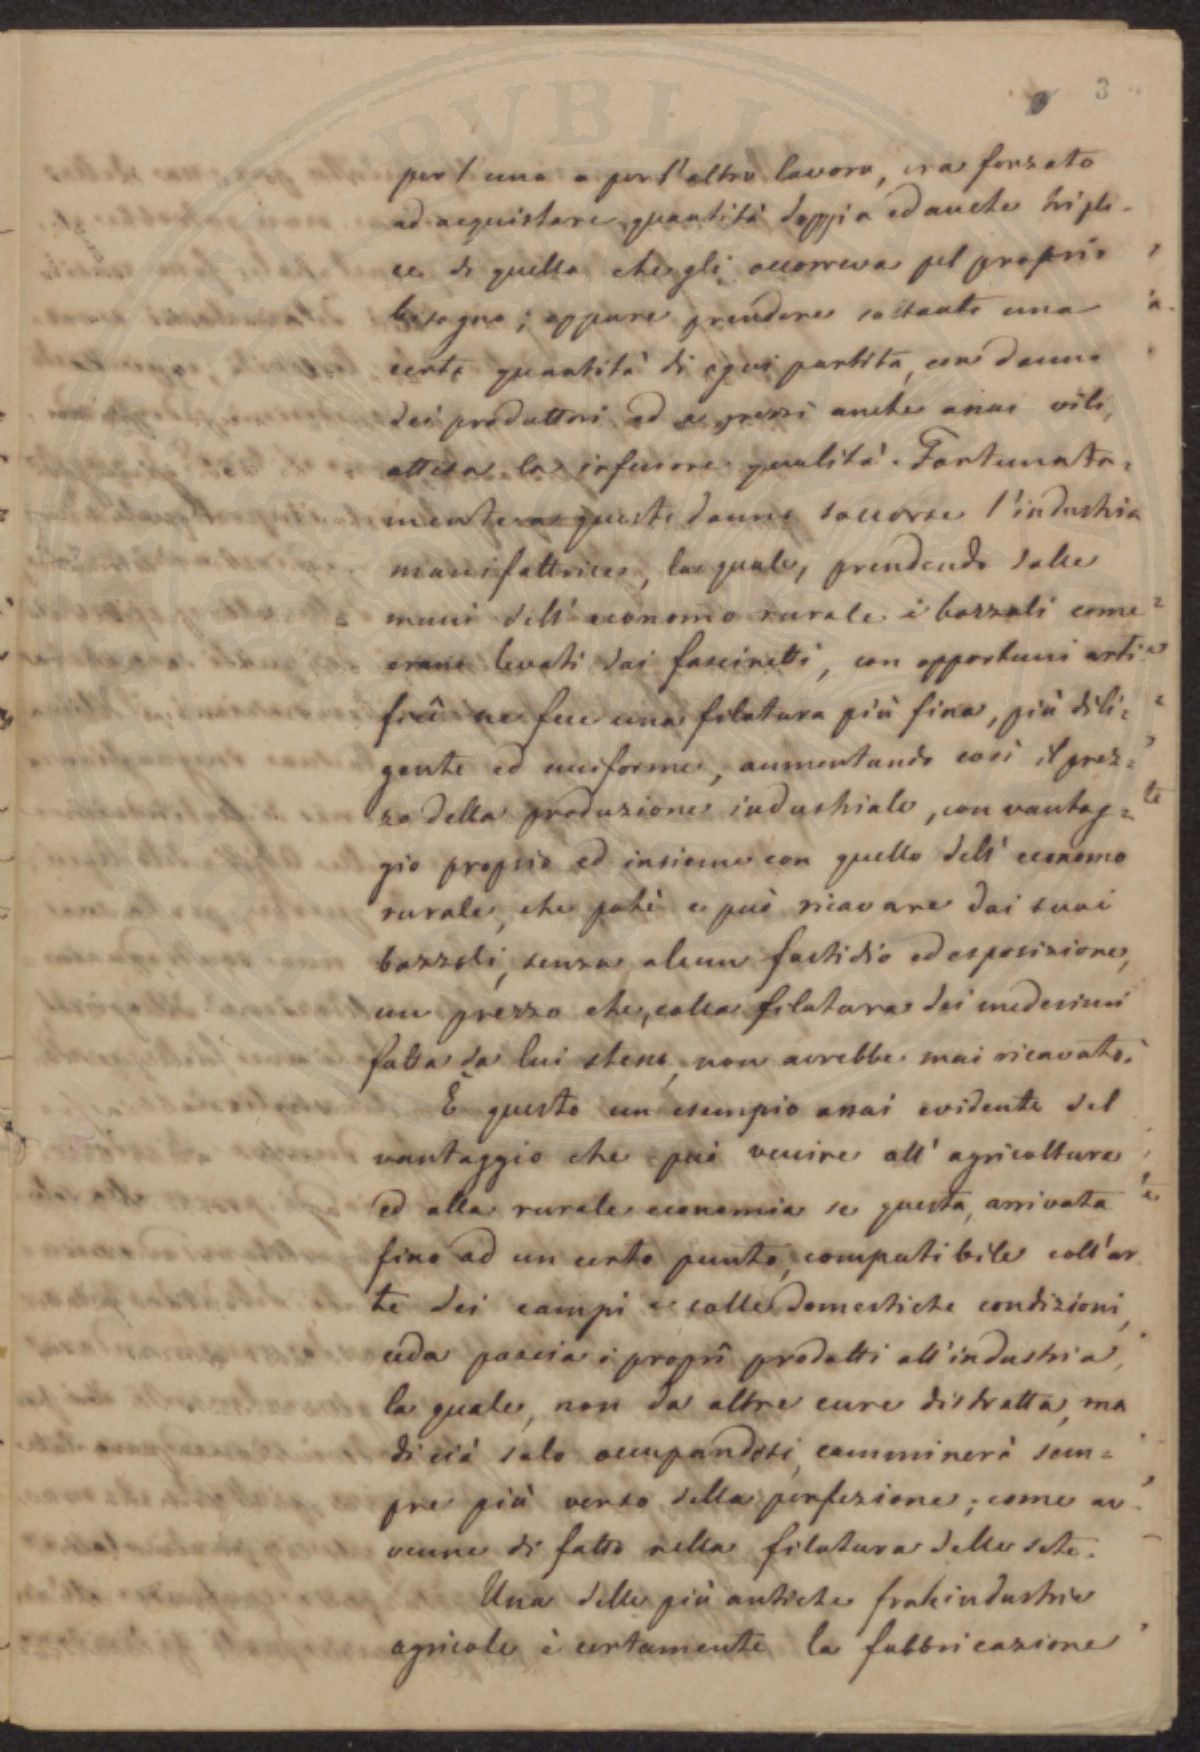 3
per l'uno o per l'altro lavoro, era forzato
ad acquistare quantità doppia ed anche tripli-
ce di quella che gli occorreva pel proprio
bisogno; oppure prendere soltanto una
certa quantità di ogni partita, con danno
dei produttori ed a prezzi anche assai vili,
attesa la inferiore qualità. Fortunata=
mente a questo danno soccorse l'industria
manifattrice, la quale, prendendo dalle
mani dell'economo rurale i bozzoli come
erano levati dai fascinetti, con opportuni arti-
ficî ne fece una filatura più fina, più dili=
gente ed uniforme, aumentando così il prez=
zo della produzione industriale, con vantag=
gio proprio ed insieme con quello dell'economo
rurale, che potè e può ricavare dai suoi
bozzoli, senza alcun fastidio ed esposizione,
un prezzo che, colla filatura dei medesimi
fatta da lui stesso, non avrebbe mai ricavato.
È questo un esempio assai evidente del
vantaggio che può venire all'agricoltura
ed alla rurale economia se questa, arrivata
fino ad un certo punto, compatibile coll'ar-
te dei campi e colle domestiche condizioni,
ceda poscia i proprî prodotti all'industria,
la quale, non da altre cure distratta, ma
di ciò solo occupandosi, camminerà sem=
pre più verso della perfezione; come av-
venne di fatto nella filatura delle sete.
Una delle più antiche frale industrie
agricole è certamente la fabbricazione